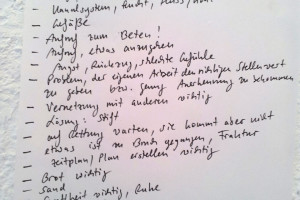 - Kanalsystem, feucht, Fluss, 
Gefäße
- Anfang zum Beten!
- Anfang, etwas anzugehen
- Angst, Rückzug, schlechte Gefühle
- Problem, der eigenen Arbeit den richtigen Stellenwert
zu geben bzw. genug Anerkennung zu bekommen
- Vernetzung mit anderen wichtig
- Lösung: Stift
- auf Rettung warten, sie kommt aber nicht
- etwas ist zu Bruch gegangen, Fraktur
- Zeitplan/Plan erstellen wichtig
- Brot wichtig
- Sand
wichtig, Ruhe